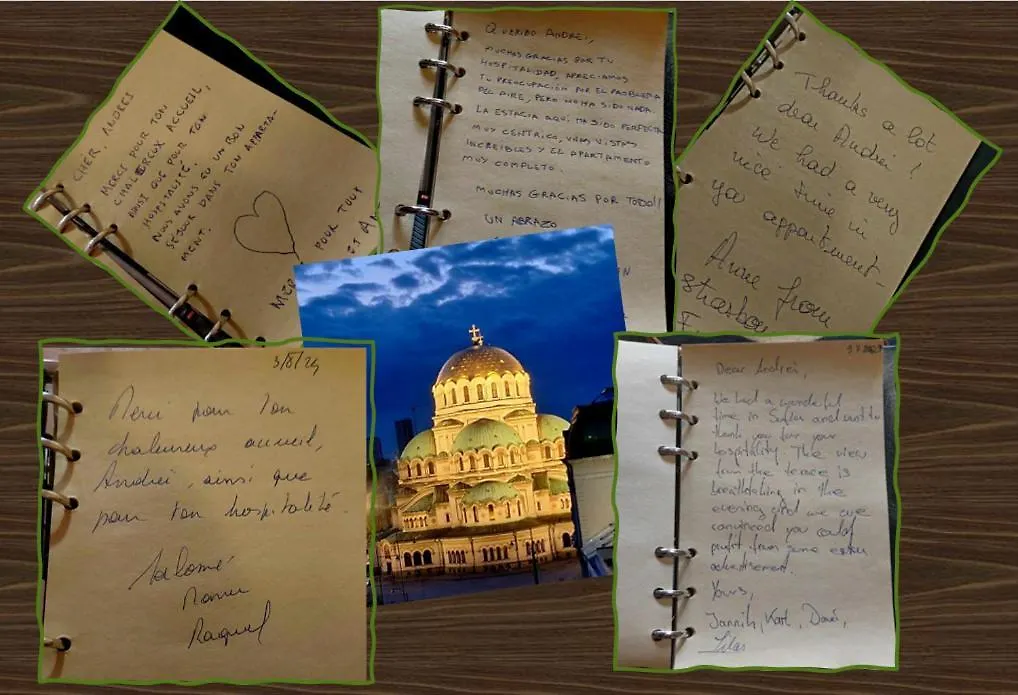 CHER ANDREI
MERCI POUR TON
CHALEUREUX ACCUEIL,
AINSI QUE POUR TON
HOSPITALITÉ.
NOUS AVONS EU UN BON
SÉJOUR DANS TON APPARTE-
MENT.
POUR TOUT
QUERIDO ANDREI,
MUCHAS GRACIAS POR TU
HOSPITALIDAD, APRECIAMOS
TU PREOCUPACIÓN POR EL PROBLEMA
DEL AIRE, PERO NO HA SIDO NADA.
LA ESTACIA AQUÍ HA SIDO PERFECTA
MUY CENTRICO, UNAS VISTAS
INCREIBLES Y EL APARTAMENTO
MUY COMPLETO.
MUCHAS GRACIAS POR TODO!!
UN ABRAZO
Thanks a lot
dear Andrei!
We had a very
nice time in
yo appartment
Anne from
3/8/24
Merci pour ton
chaleureux accueil,
Andrei, ainsi que
pour ton hospitalité.
Salomé
Raquel
Dear Andrei,
We had a wonderful
time in Sofia and want to
thank you for your
hospitality. The view
from the terace is
breathtaking in the
evening and we are
convinced you could
profit from some extra
advertisement.
Yours,
Jannik, Karl, David,